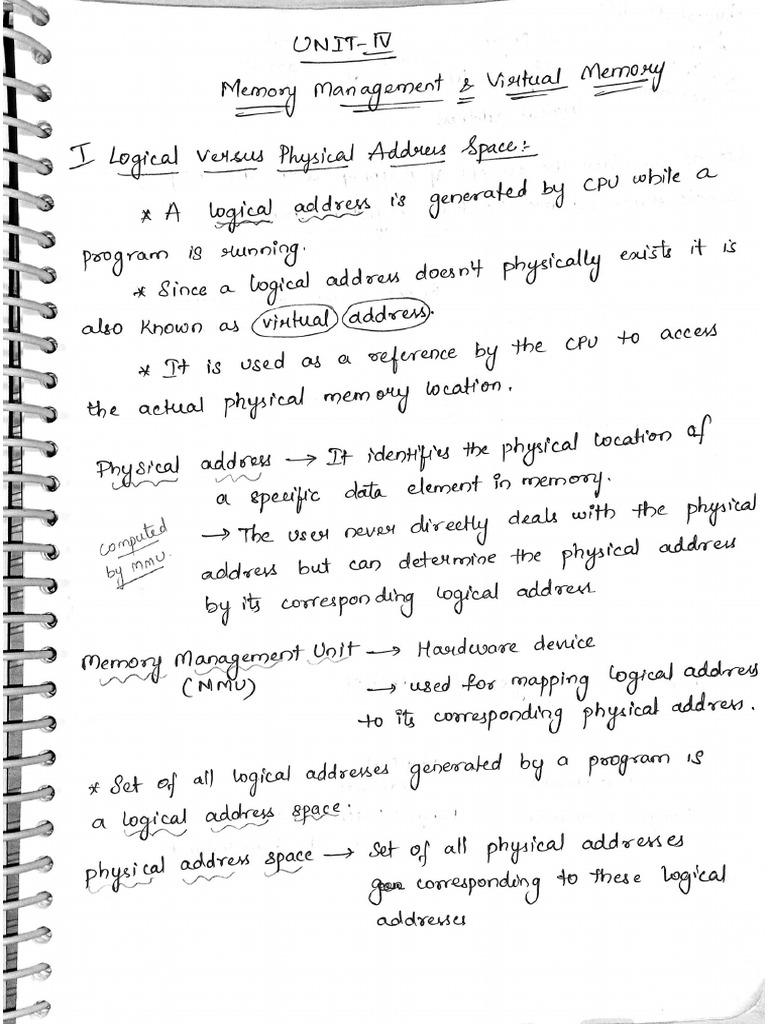 UNIT-IV
Memory Management & Virtual Memory
I Logical Versus Physical Address Space:-
* A logical address is generated by CPU while a
program is running.
* Since a logical address doesn't physically exists it is
also known as virtual address.
* It is used as a reference by the CPU to access
the actual physical memory location.
Physical address → It identifies the physical location of
a specific data element in memory.
computed
by MMU.
→ The user never directly deals with the physical
address but can determine the physical address
by its corresponding logical address
Memory Management Unit → Hardware device
(MMU)
→ used for mapping logical address
to its corresponding physical address.
* Set of all logical addresses generated by a program is
a logical address space.
physical address space → Set of all physical addresses
corresponding to these logical
addresses